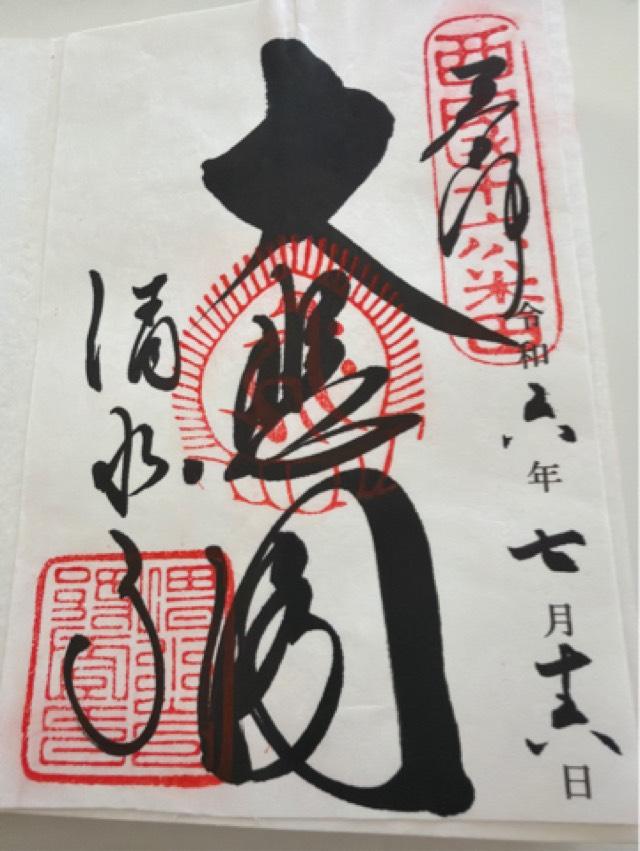 西國第十六番
奉拝
令和六年七月十六日
大悲閣
清水寺